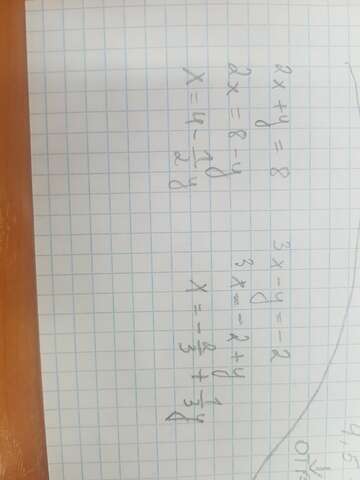 2x + y = 8
2x = 8 - y
x = 4 - 1/2 y
3x - y = -2
3x = -2 + y
x = - 2/3 + 1/3 y
4,5